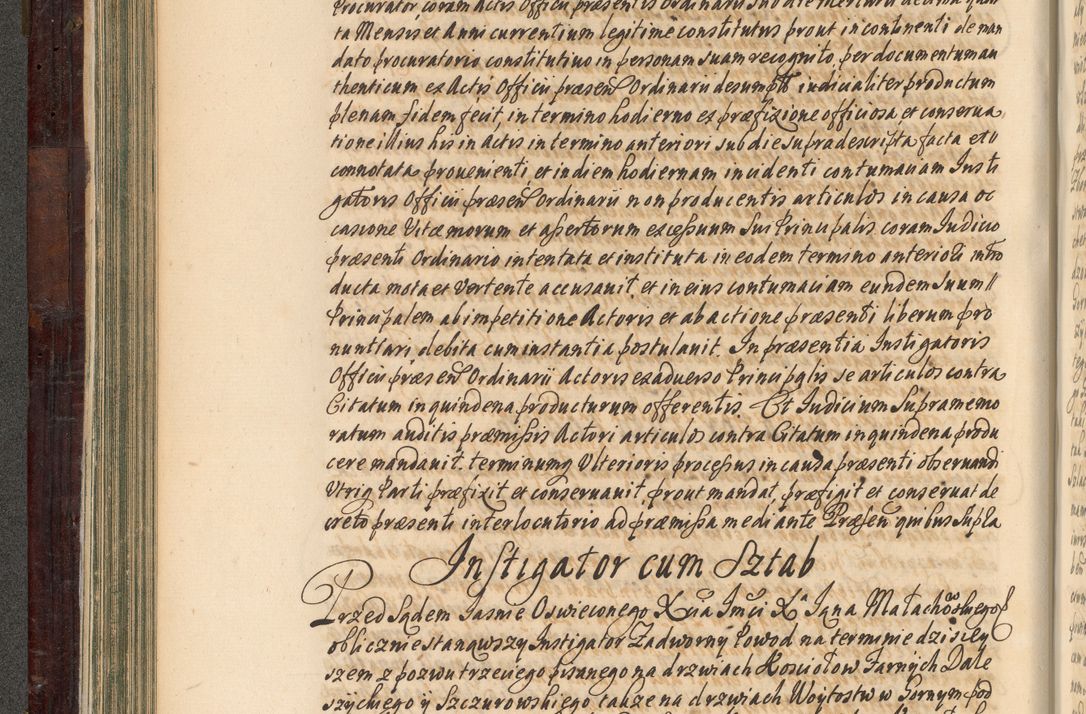 Procurator coram Actis Officii præsentis Ordinarii sub die Mercurii decima quar
ta Mensis et Anni currentium legitime constitutus prout incontinenti de man
dato procuratorio constitutivo in personam suam recognito, per documentum au
thenticum ex Actis Officii præsen Ordinarii desumpto iudicialiter productum
plenam fidem fecit, in termino hodierno ex præfixione officiosa et conserva
tione illius his in Actis in termino anteriori sub die supradescripta facta et
connotata provenienti, et in diem hodiernam incidenti contumaciam Insti
gatoris Officii præsen Ordinarii non producentis articulos in causa oc
casione Vitæ morum et assertorum excessuum Sui Principalis coram Iudicio
præsenti Ordinario intentata et instituta in eodem termino anteriori intro
ducta mota et vertente accusavit, et in eius contumaciam eundem Suum
Principalem ab impetitione Actoris et ab actione præsenti liberum pro
nuntiari debita cum instantia postulavit. In præsentia Instigatoris
Officii præsen Ordinarii Actoris ex adverso Principalis se articulos contra
Citatum in quindena producturum offerentis. Et Iudicium Supramemo
ratum auditis præmissis Actori articulos contra Citatum in quindena produ
cere mandavit. terminumq Ulterioris processus in causa præsenti observandi
Utriq Parti præfixit et conservavit, prout mandat, præfigit et conservat de
creto præsenti interlocutorio ad præmissa mediante Præsen quibus supla
Instigator cum Sztab
Przed Sądem Iasnie Oswieconego Xcia Imci Xa Iana Małachowskiego
oblicznie stanąwszy Instigator Zadworny Powod na terminie dzisiey
szem z pozwu trzeciego pisanego na drzwiach Kosciołow Farnych Dale
szyckiego y Szczurowskiego takze na drzwiach Woytostw w Gornym pod